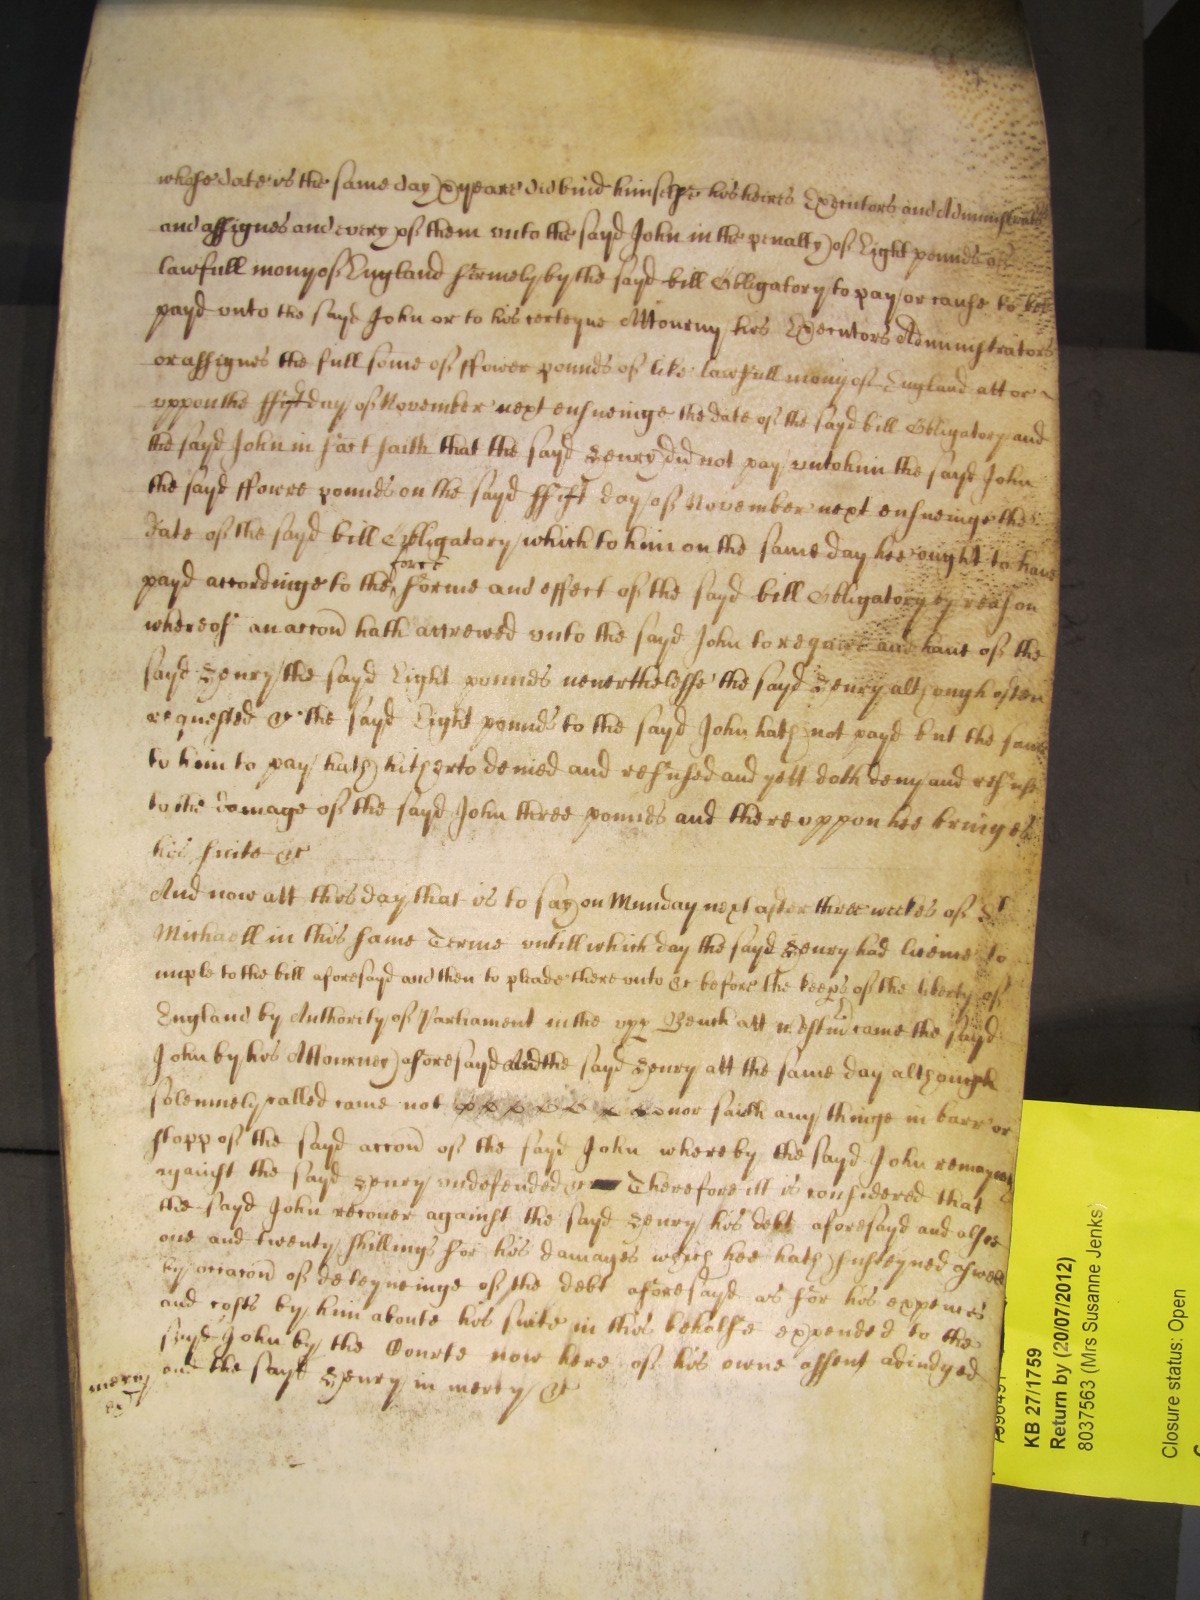 whose date is the same day & yeare did bind himselfe his heires Executors and Administrators
and assignes and every of them unto the sayd John in the penalty of Eight pounds of
lawfull mony of England firmely by the sayd bill Obligatory to pay or cause to bee
payd unto the sayd John or to his certeyne Attourny his Executors Administrators
or assignes the full some of ffower pounds of like lawfull mony of England att or
uppon the ffift day of November next ensueinge the date of the sayd bill Obligatory and
the sayd John in fact saith that the sayd Henry did not pay unto him the sayd John
the sayd ffowre pounds on the sayd ffift day of November next ensueinge the
date of the sayd bill Obligatory which to him on the same day hee ought to have
payd accordinge to the force forme and effect of the sayd bill Obligatory by reason
whereof an accon hath accrewed unto the sayd John to require and have of the
sayd Henry the sayd Eight pounds neverthelesse the sayd Henry although often
requested &c the sayd Eight pounds to the sayd John hath not payd but the same
to him to pay hath hitherto denied and refused and yett doth deny and refuse
to the Damage of the sayd John three pounds and there uppon hee bringes
his suite &c
And now att this day that is to say on Munday next after three weekes of St
Michaell in this same Terme untill which day the sayd Henry had licence to
imple to the bill aforesayd and then to pleade there unto &c before the keeps of the liberty of
England by Authority of Parliament in the upp Bench att Westm came the sayd
John by his Attourney aforesayd And the sayd Henry att the same day although
solemnely called came not nor saith any thinge in barr or
stopp of the sayd accon of the sayd John whereby the sayd John remaynes
against the sayd Henry undefended &c Therefore itt is considered that
the sayd John recover against the sayd Henry his debt aforesayd and alsoe
one and twenty shillings for his damages which hee hath susteyned aswell
by occacon of deteyneinge of the debt aforesayd as for his expences
and costs by him aboute his suite in this behalfe expended to the
sayd John by the Courte now here of his owne assent adiudged
and the sayd Henry in mercy &c
mercy